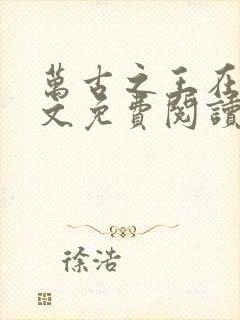 萬古之王在
文免費閱讀
徐浩